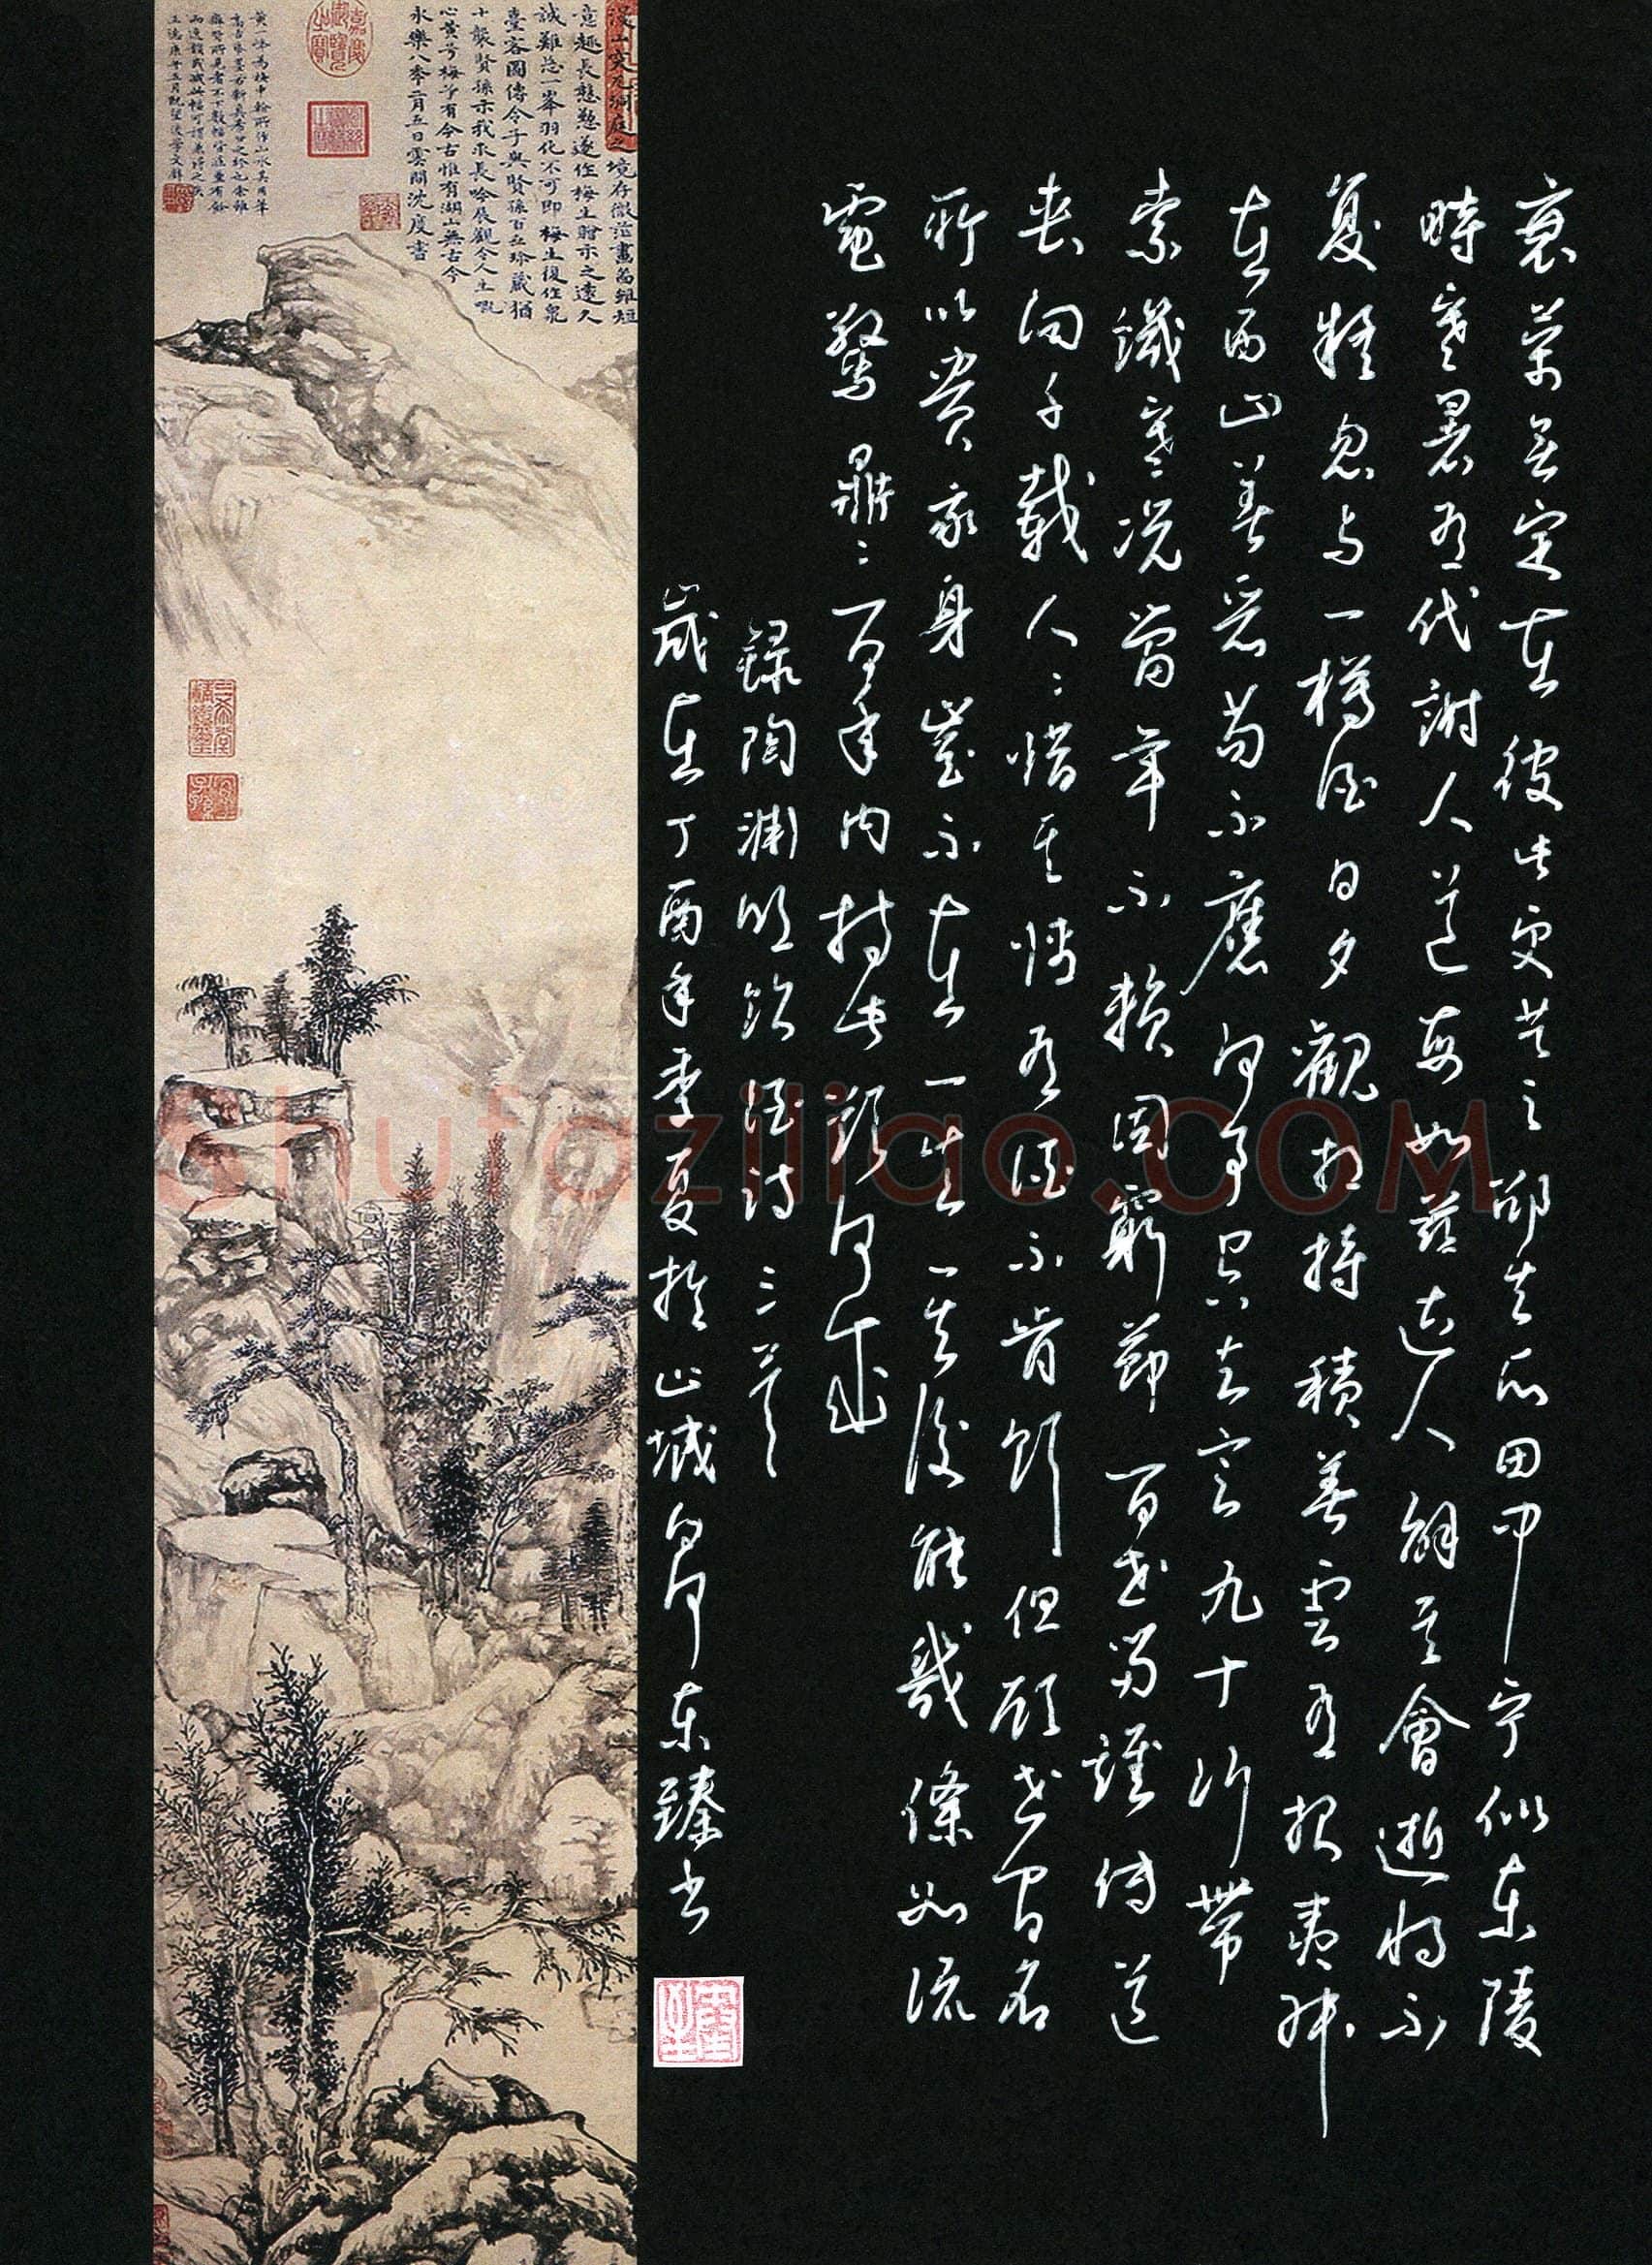 衰榮无定在彼此更共之邵生瓜田中宁似東陵
時寒暑有代謝人道每如茲達人解其會逝將不
復疑忽与一樽酒日夕觀相持積善雲有報夷叔
在西山善惡苟不應何事空立言九十行帶
索饑寒況當年不賴固窮節百世當誰傳道
喪向千載人〻惜其情有酒不肯飲但顧世間名
所以貴我身豈不在一生一生復能幾倏如流
電驚鼎〻百年內持此欲何成
錄陶淵明飲酒詩三首
歲在丁酉年季夏於山城白河東臻書
溪山突兀洞庭之境存微茫畫雖短
意趣長遂作梅生贈示之遠久
誠難忘一峯羽化不可即梅生復作泉
臺客圖傳令子與賢孫百五珍藏猶
十襲賢孫示我求長吟展觀令人生嘅
心黃兮梅兮有今古惟有湖山無古今
永樂八年二月五日雲間沈度書
黃一峰為梅中翰所作山水其用筆
Shufaziliao.COM